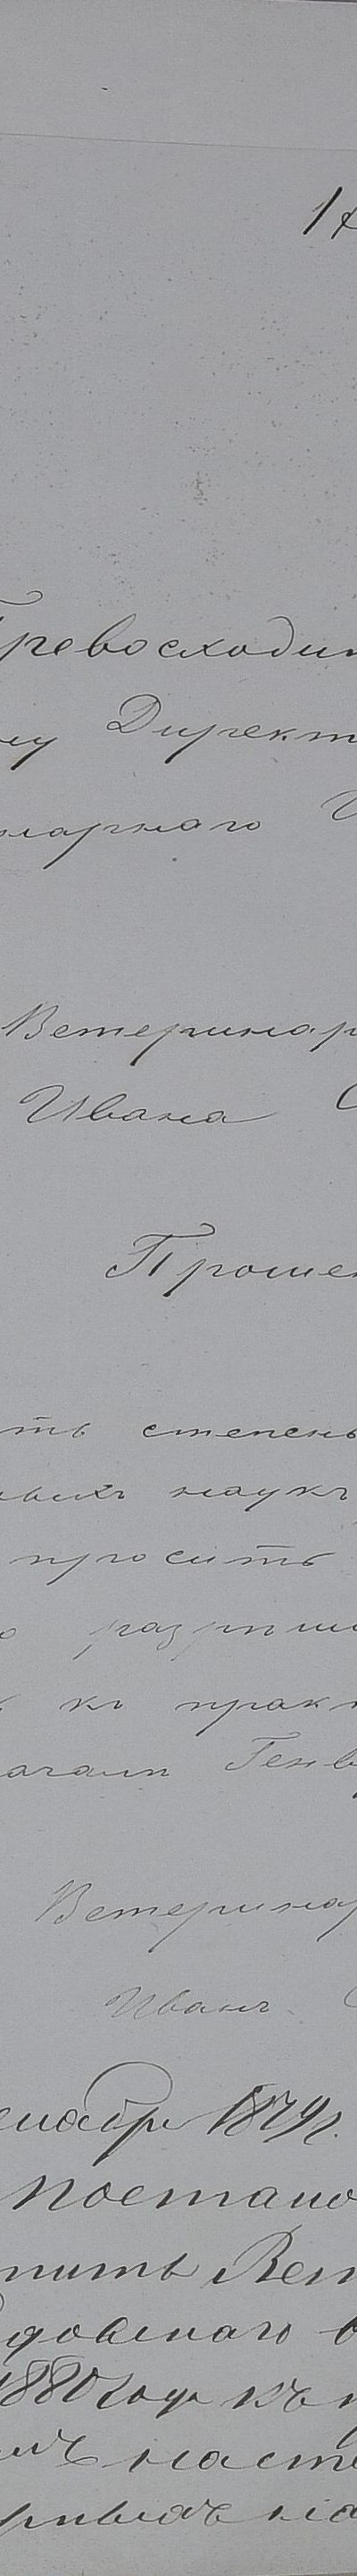 1
Превосходи
ну Директ
нарнаго
Ветеринар
Ивана С
Проше
ть степень
ныхъ наукъ
просить
о разрѣше
ъ къ прак
началѣ Генв
Ветеринар
Иванъ С
екабря 1879 г.
Постано
тить Вет
довскаго
1880 году къ
имъ насто